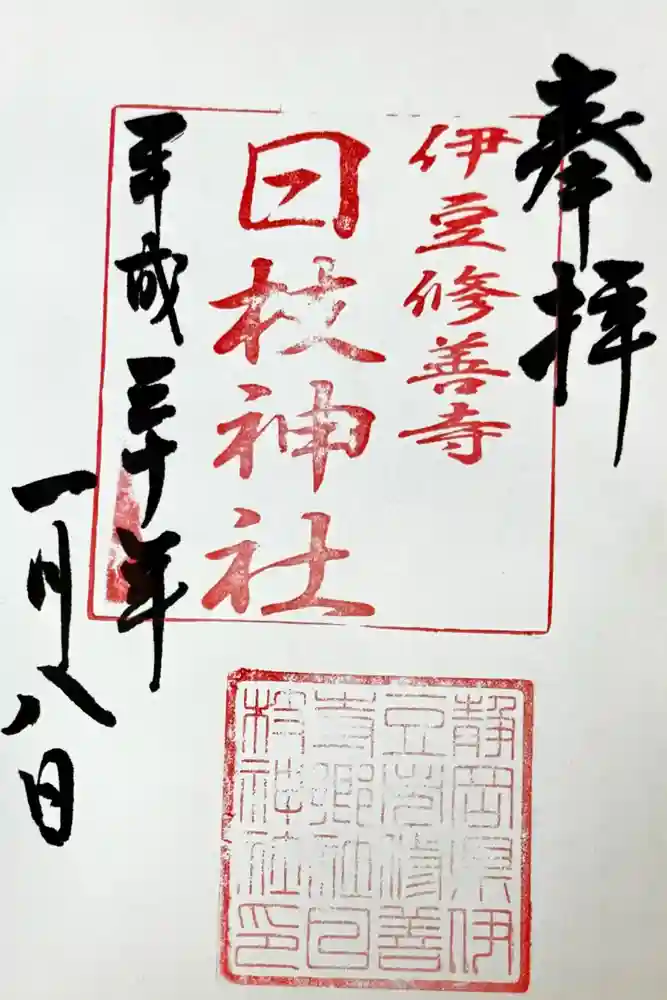 奉拝
伊豆修善寺
日枝神社
平成三十年
一月八日
静岡県伊
豆修善
寺郷社日
枝神社印